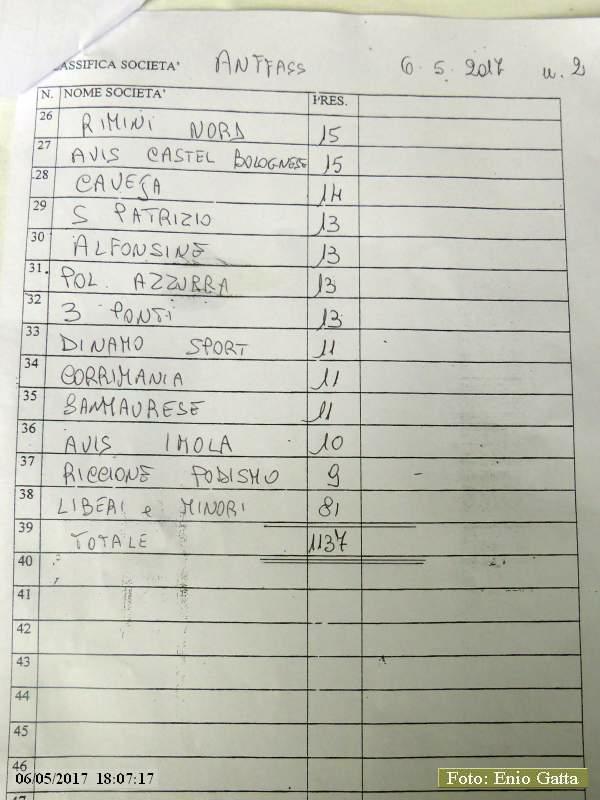 CLASSIFICA SOCIETA' ANFFASS 6.5.2017 n. 2
N. NOME SOCIETA' PRES.
26 RIMINI NORD 15
27 AVIS CASTEL BOLOGNESE 15
28 CAVEJA 14
29 S PATRIZIO 13
30 ALFONSINE 13
31. POL. AZZURRA 13
32 3 PONTI 13
33 DINAMO SPORT 11
34 CORRIMANIA 11
35 SANMAURESE 11
36 AVIS IMOLA 10
37 RICCIONE PODISMO 9 -
38 LIBERI e MINORI 81
39 TOTALE 1137
40
41
42
43
44
45
46
47
06/05/2017 18:07:17
Foto: Enio Gatta